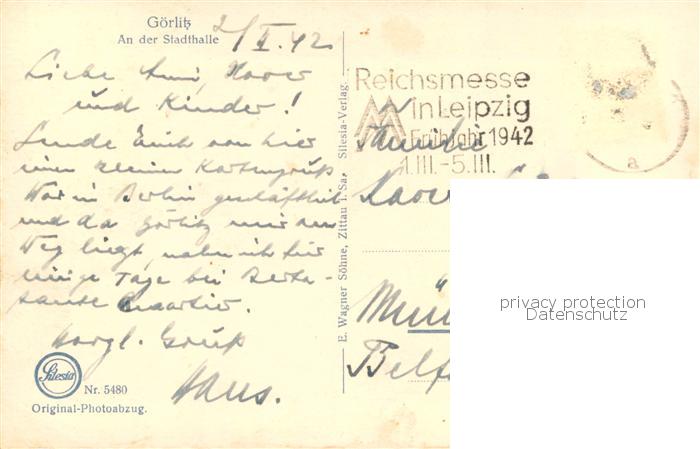 Görlitz
An der Stadthalle
2/I.42
Liebe Ami, Xaver
und Kinder!
Sende Euch von hier
einen kleinen Kartengruß
War in Berlin geschäftlich
und da Görlitz mir am
Weg liegt, nahm ich für
einige Tage bei Berta-
tante Quartier.
Herzl. Gruß
Hans.
Silesia
Nr. 5480
Original-Photoabzug.
E. Wagner Söhne, Zittau i. Sa. Silesia-Verlag.
Reichsmesse
in Leipzig
Frühjahr 1942
1.III.-5.III.
a
Familie
Xaver
Mün
Belf
privacy protection
Datenschutz